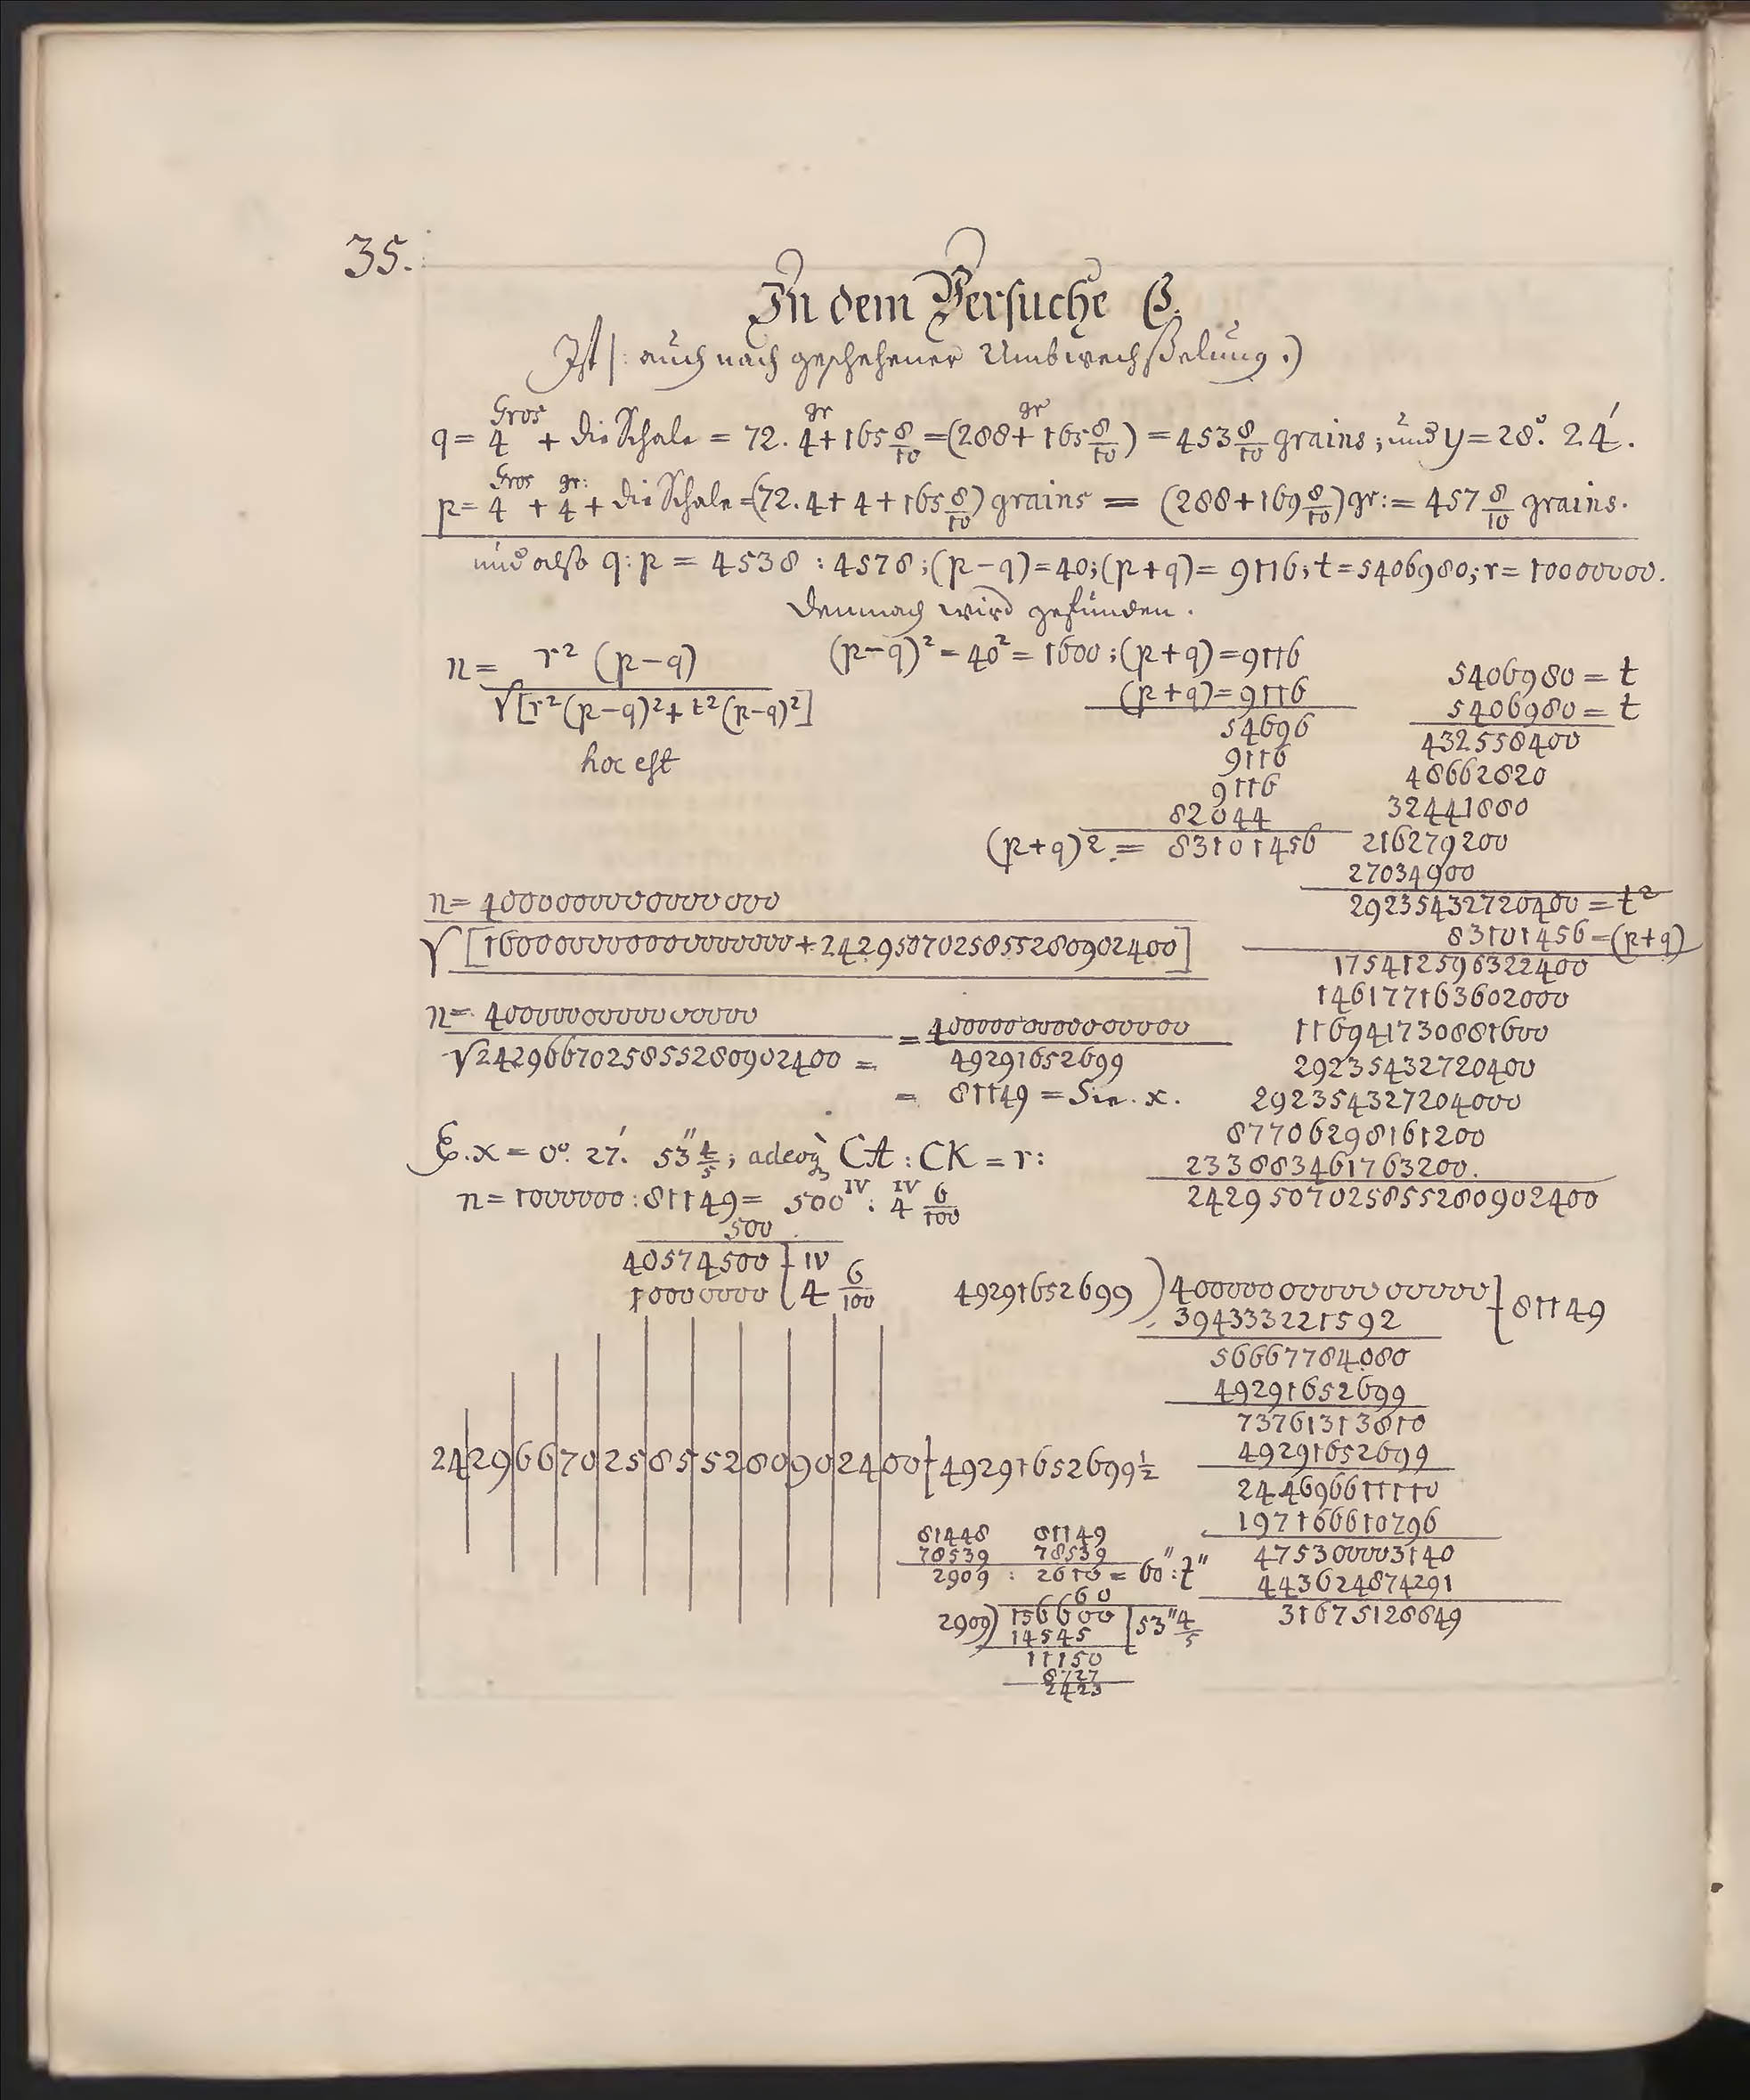 35.
In dem Versuche C.
Ist /: auch nach geschehener Umbwechßelung :)
Gros gr gr
q = 4 + die Schale = 72. 4 + 165 8/10 = (288 + 165 8/10) = 453 8/10 grains; und y = 28°. 24′.
Gros gr:
p = 4 + 4 + die Schale = (72. 4 + 4 + 165 8/10) grains = (288 + 169 8/10) gr: = 457 8/10 grains.
und also q : p = 4538 : 4578; (p − q) = 40; (p + q) = 9116; t = 5406980; r = 10000000.
demnach wird gefunden.
n = r² (p − q)
√[r² (p − q)² + t² (p − q)²]
hoc est
(p − q)² = 40² = 1600; (p + q) = 9116
(p + q) = 9116
54696
9116
9116
82044
(p + q)² = 83101456
5406980 = t
5406980 = t
432558400
48662820
32441880
216279200
27034900
29235432720400 = t²
83101456 = (p + q)
175412596322400
146177163602000
116941730881600
29235432720400
292354327204000
87706298161200
233883461763200.
2429507025855280902400
n = 4000000000000000
√[160000000000000000 + 2429507025855280902400]
n = 4000000000000000
√2429667025855280902400 =
= 4000000000000000
49291652699
= 81149 = Sin. x.
E. x = 0°. 27′. 53″ 4/5; adeoq CA : CK = r :
n = 10000000 : 81149 = 500 IV : 4 IV 6/100
500
40574500 [ IV
10000000 [ 4 6/100
49291652699 ) 4000000000000000 [ 81149
394333221592
56667784080
49291652699
73761313810
49291652699
244696611110
197166610796
475300003140
443624874291
31675128849
24|29|66|70|25|85|52|80|90|24|00 [ 49291652699 1/2
81448 81149
78539 78539
2909 : 2610 = 60″ : ?″
60
2909) 156600 [ 53″ 4/5
14545
11150
8727
2423